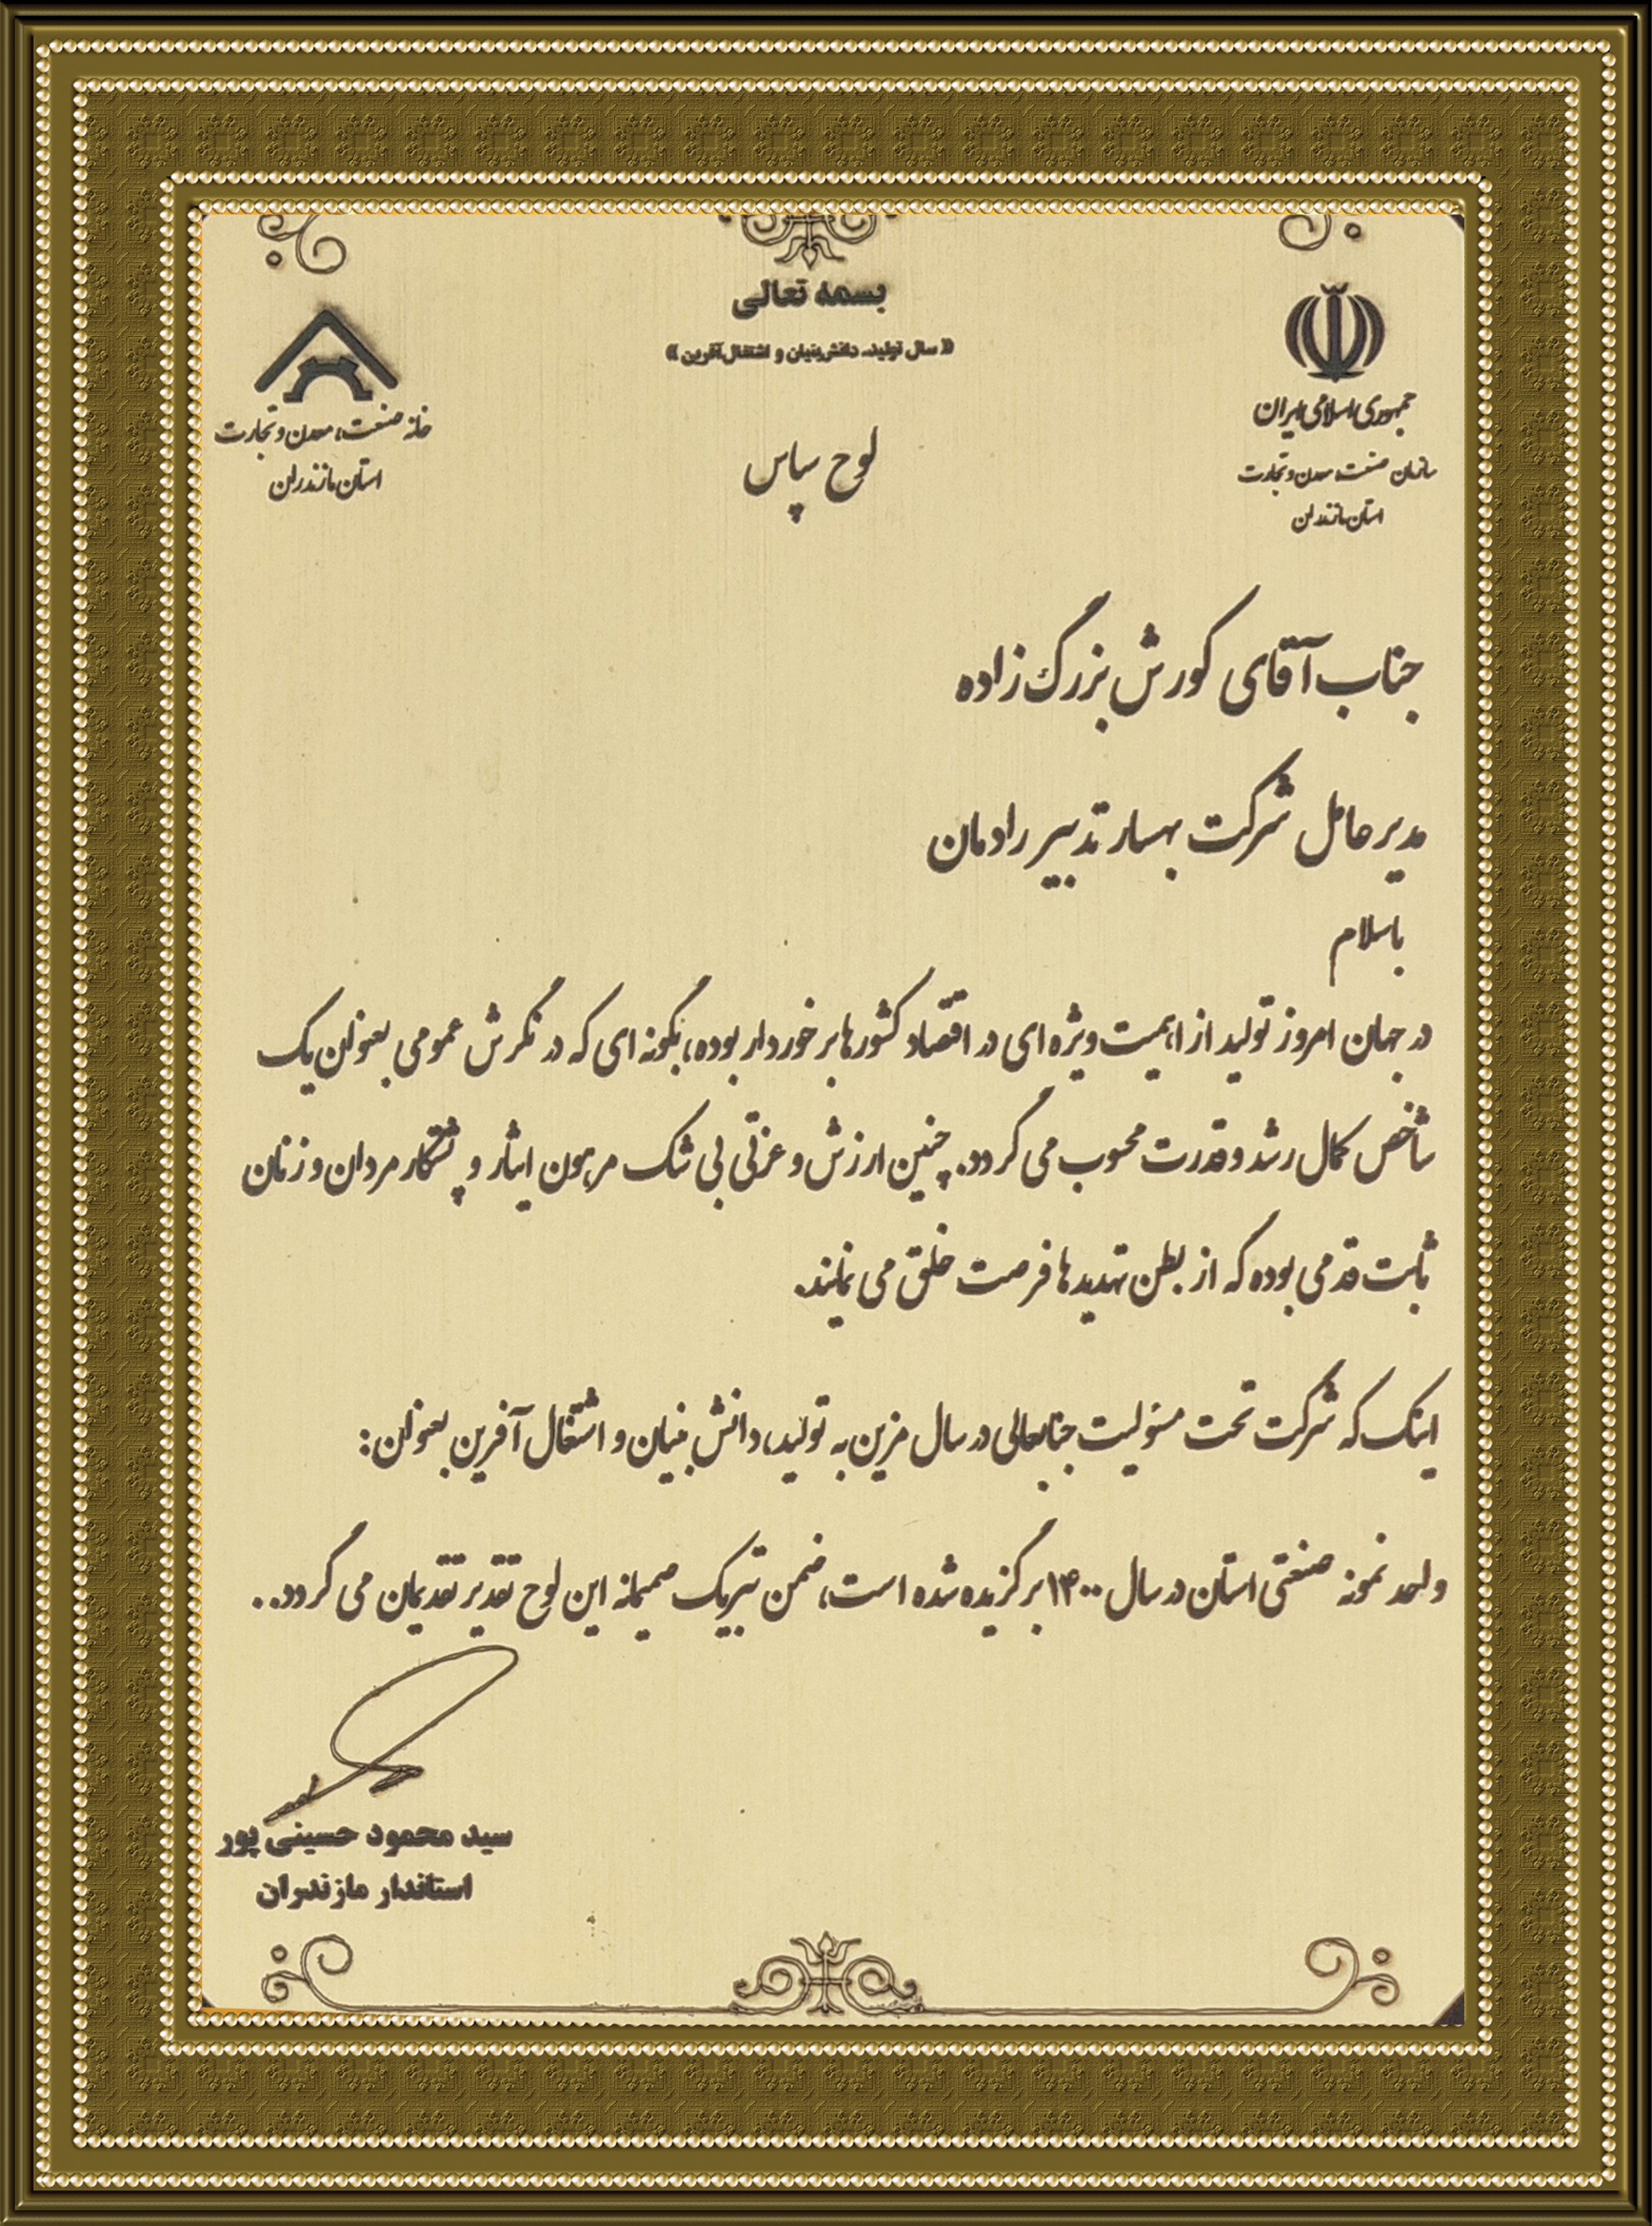 بسمه تعالی
«سال تولید، دانش‌بنیان و اشتغال‌آفرین»
جمهوری اسلامی ایران
سازمان صنعت، معدن و تجارت
استان مازندران
خانه صنعت، معدن و تجارت
استان مازندران
لوح سپاس
جناب آقای کورش بزرگ زاده
مدیر عامل شرکت بهسار تدبیر رادمان
باسلام
در جهان امروز تولید از اهمیت ویژه ای در اقتصاد کشورها برخوردار بوده، بگونه ای که در نگرش عمومی بعنوان یک
شاخص کمال رشد و قدرت محسوب می گردد. چنین ارزش و عزتی بی شک مرهون ایثار و پشتکار مردان و زنان
ثابت قدمی بوده که از بطن تهدیدها فرصت خلق می نمایند.
اینک که شرکت تحت مسئولیت جنابعالی در سال مزین به تولید، دانش بنیان و اشتغال آفرین بعنوان:
واحد نمونه صنعتی استان در سال ۱۴۰۰ برگزیده شده است، ضمن تبریک صمیمانه این لوح تقدیر تقدیمتان می گردد..
سید محمود حسینی پور
استاندار مازندران